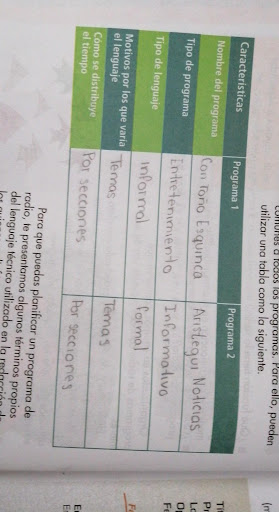 comunes a todos los programas. Para ello, pueden
utilizar una tabla como la siguiente.
Características Programa 1 Programa 2
Nombre del programa Con Toño Esquinca Aristegui Noticias
Tipo de programa Entretenimiento Informativo
Tipo de lenguaje Informal formal
Motivos por los que varía
el lenguaje Temas Temas
Cómo se distribuye
el tiempo Por secciones Por secciones
Para que puedas planificar un programa de
radio, te presentamos algunos términos propios
del lenguaje técnico utilizado en la redacción